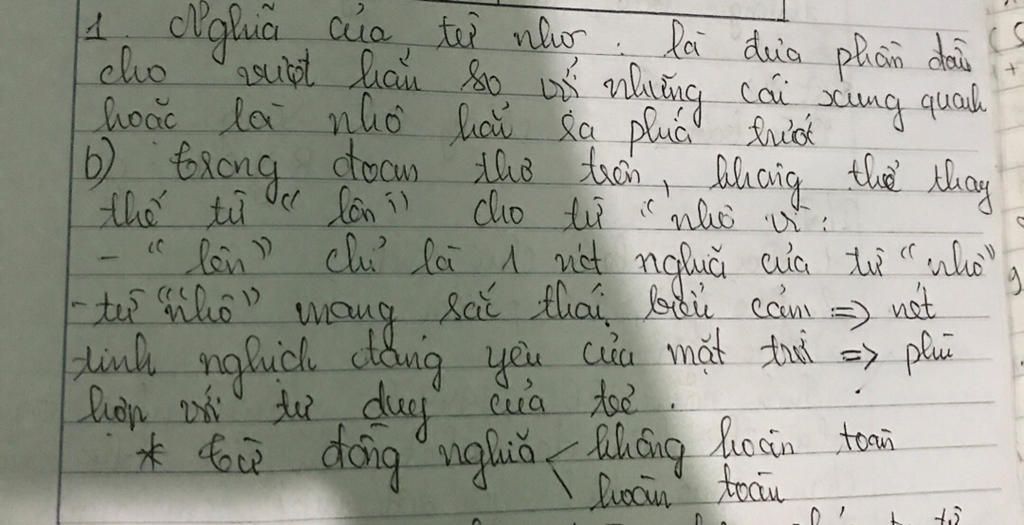 1. Nghĩa của từ nhô. là đưa phần đầu
cho vượt hẳn so với những cái xung quanh
hoặc là nhô hẳn ra phía trước
b) trong đoạn thơ trên, không thể thay
thế từ "lên" cho từ "nhô vì:
- "lên" chỉ là 1 nét nghĩa của từ "nhô"
- từ "nhô" mang sắc thái biểu cảm => nét
tinh nghịch đáng yêu của mặt trời => phù
hợp với tư duy của trẻ.
* từ đồng nghĩa < không hoàn toàn
hoàn toàn